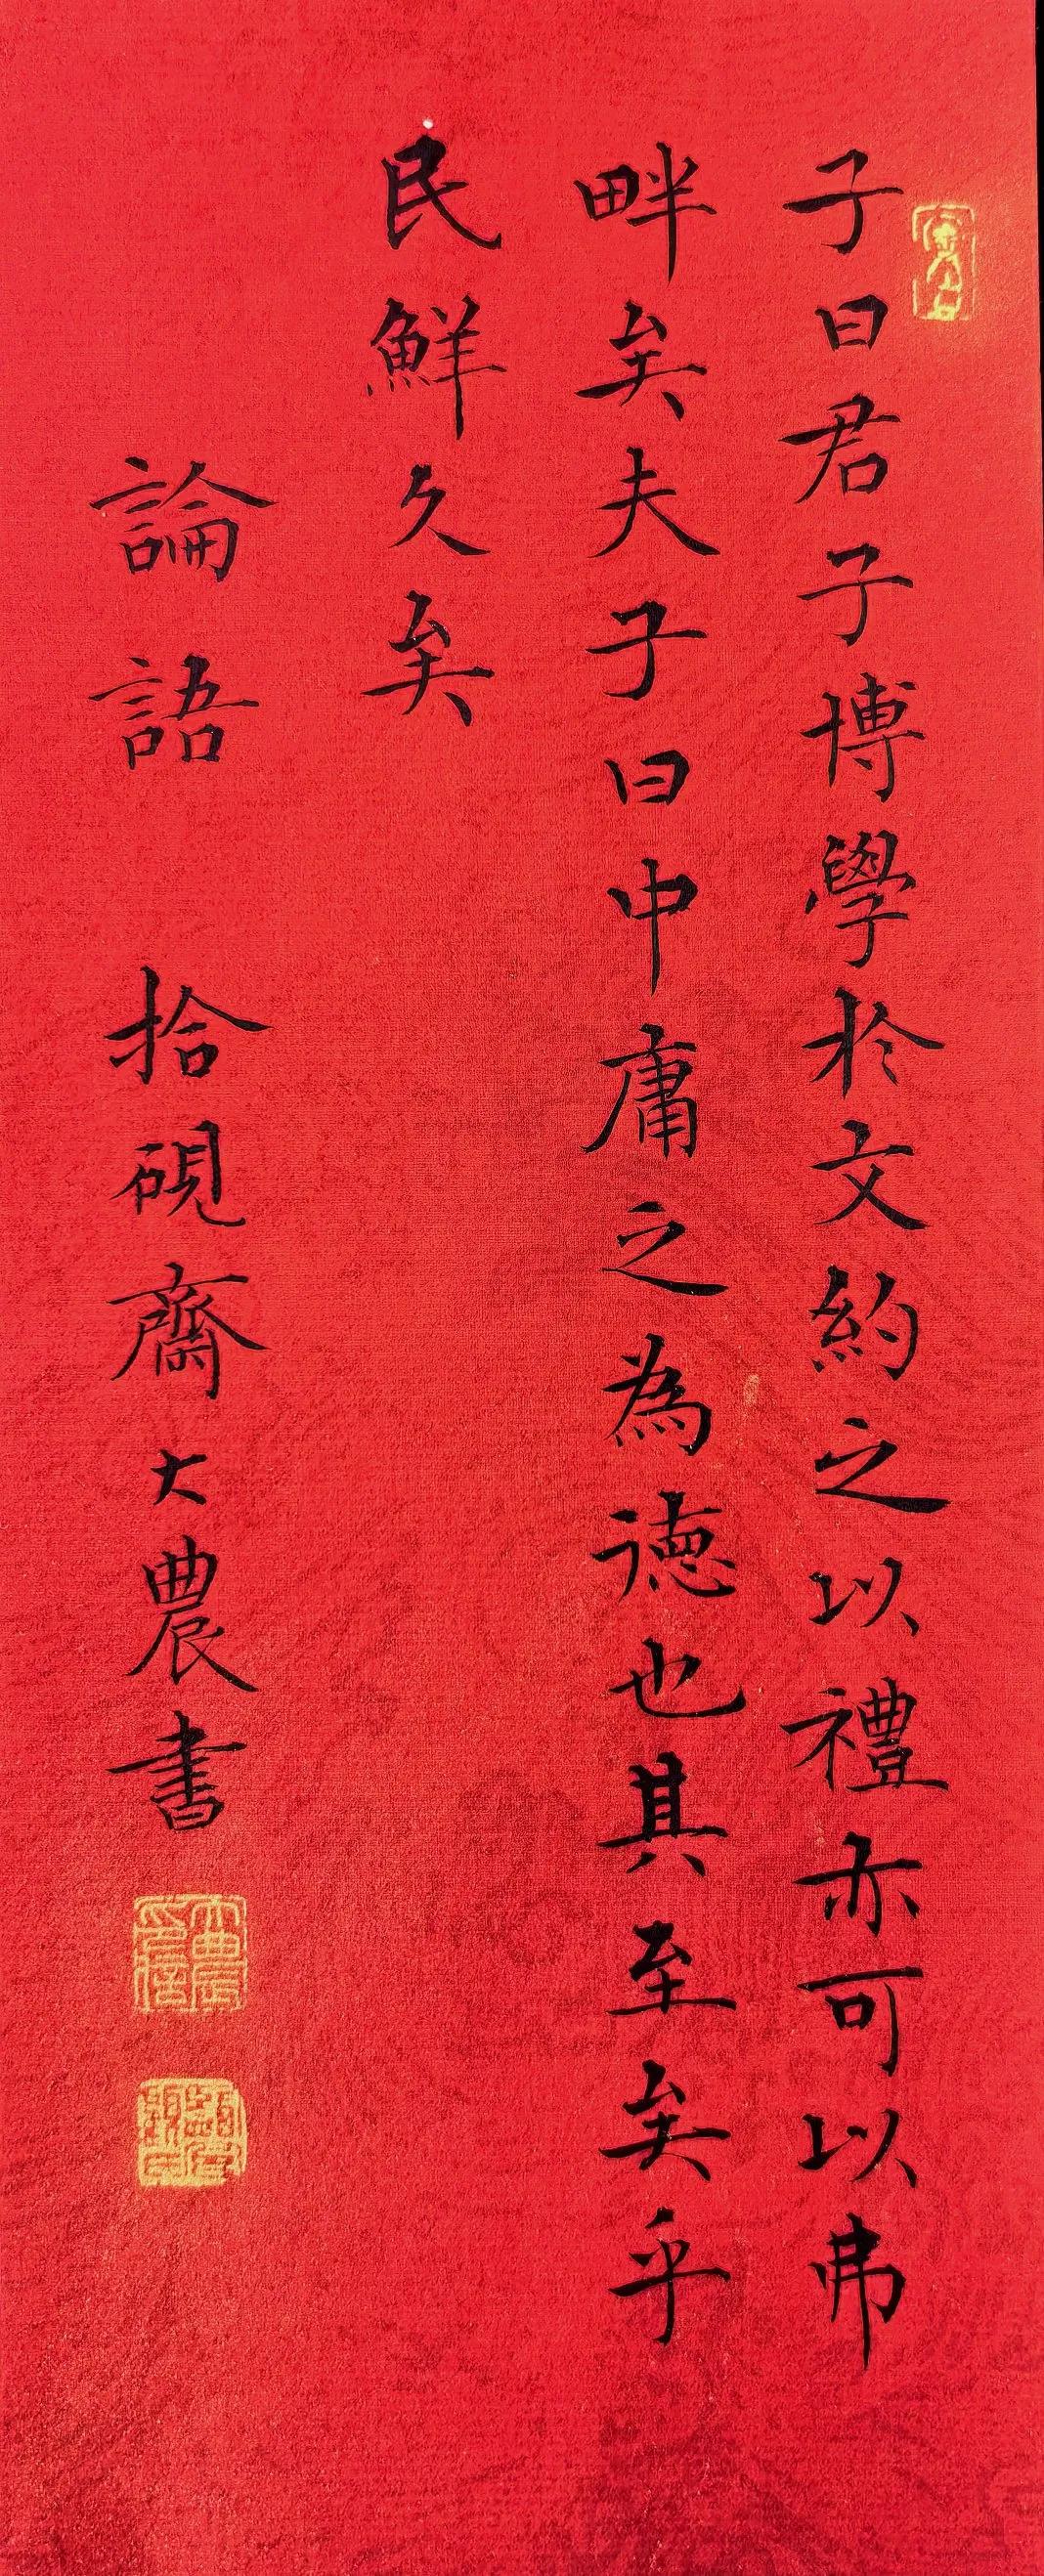 子曰君子博學於文約之以禮亦可以弗
畔矣夫子曰中庸之為德也其至矣乎
民鮮久矣
論語 拾硯齋大農書